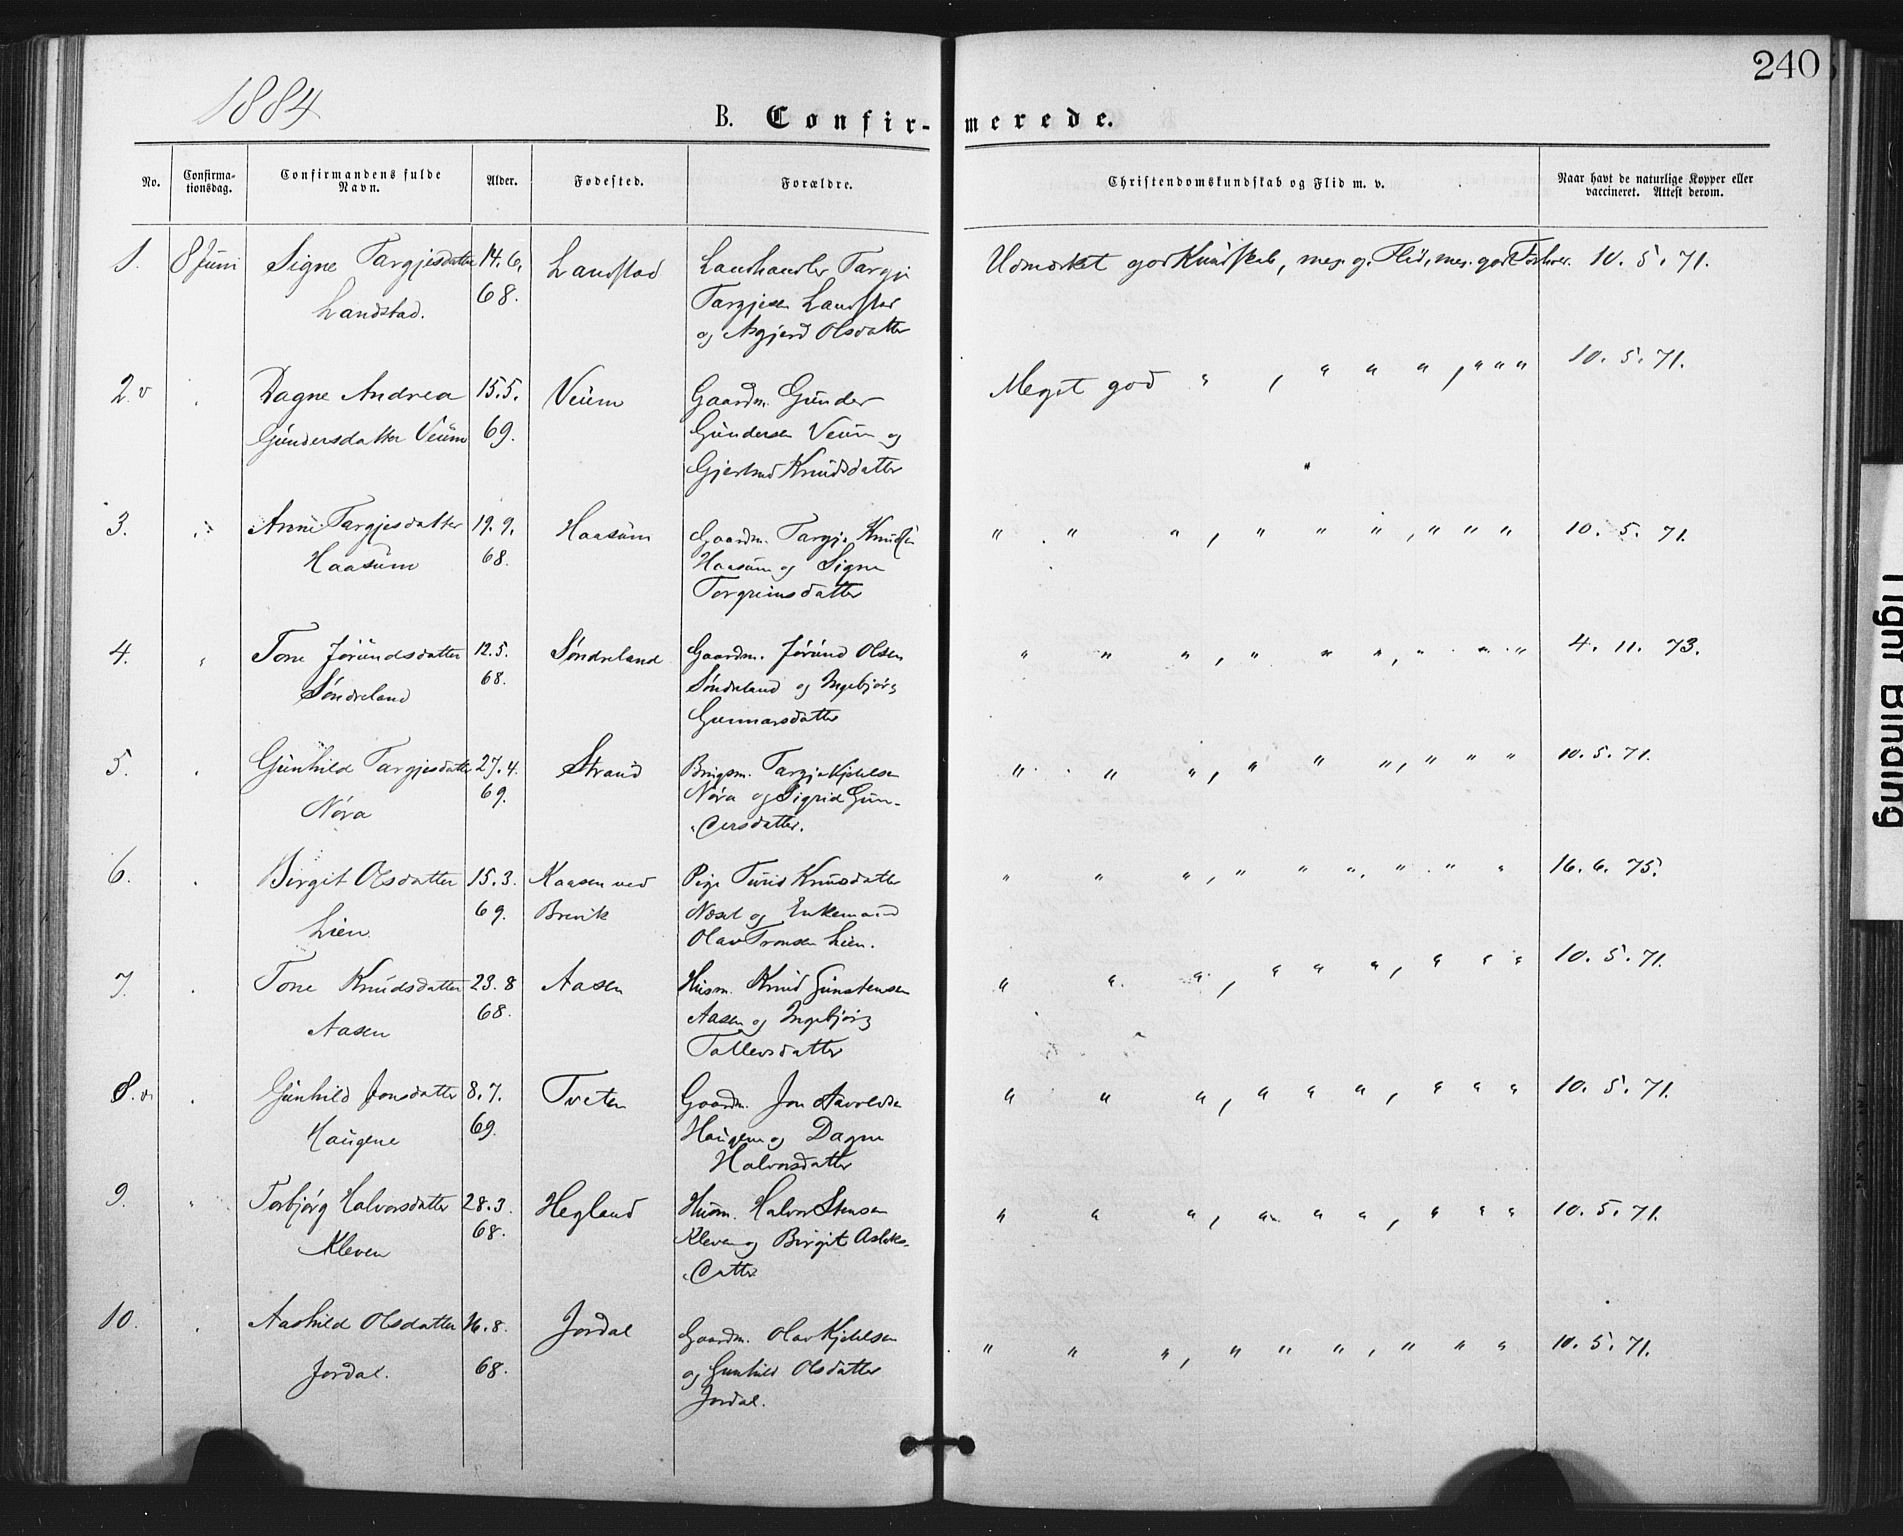 240
1884
B. Confirmerede.
No.
Confirmationsdag.
Confirmandens fulde Navn.
Alder.
Fødested.
Forældre.
Christendomskundskab og Flid m. v.
Naar havt de naturlige Kopper eller
vaccineret. Attest derom.
1. 8 Juni Signe Targjesdatter 14. 6. Landstad Landhandler Targje Udmærket god Kundskab, meg. g. Flid, meg. god Forhor. 10. 5. 71.
Landstad. 68. Targjesen Landstad
og Asgjerd Olsdatter
2. v " Dagne Andrea 15. 5. Veum Gaardm. Gunder Meget god " , " " " , " " " 10. 5. 71.
Gundersdatter Veum 69. Gundersen Veum og
Gjertrud Knudsdatter
3. " Anne Targjesdatter 19. 9. Haasum Gaardm. Targje Knudsen " " " , " " " , " " " 10. 5. 71.
Haasum 68. Haasum og Signe
Torgrimsdatter
4. " Tone Jörundsdatter 12. 5. Søndreland Gaardm. Jörund Olsen " " " , " " " , " " " 4. 11. 73.
Søndreland 68. Søndreland og Ingebjørg
Gunnarsdatter
5. " Gunhild Targjesdatter 27. 4. Strand Brugsm. Targje Kjetelsen " " " , " " " , " " " 10. 5. 71.
Nøra 69. Nøra og Sigrid Gun-
dersdatter.
6. " Birgit Olsdatter 15. 3. Kaasen ved Pige Turid Knudsdatter " " " , " " " , " " " 16. 6. 75.
Lien 69. Brevik Næset og Enkemand
Olav Tronsen Lien.
7. " Tone Knudsdatter 23. 8 Aasen Husm. Knud Gunstensen " " " , " " " , " " " 10. 5. 71.
Aasen 68. Aasen og Ingebjørg
Tallevsdatter
8. v. " Gunhild Jonsdatter 8. 7. Tveten Gaardm. Jon " " " , " " " , " " " 10. 5. 71.
Haugene 69. Haugene og Dagne
Halvorsdatter
9. " Torbjørg Halvorsdatter 28. 3. Hegland Husm. Halvor Stensen " " " , " " " , " " " 10. 5. 71.
Kleven 68. Kleven og Birgit Aslaks-
datter
10. " Aashild Olsdatter 16. 8. Jordal Gaardm. Olav Kjetelsen " " " , " " " , " " " 10. 5. 71.
Jordal. 68. og Gunhild Olsdatter
Jordal.
Tight Binding